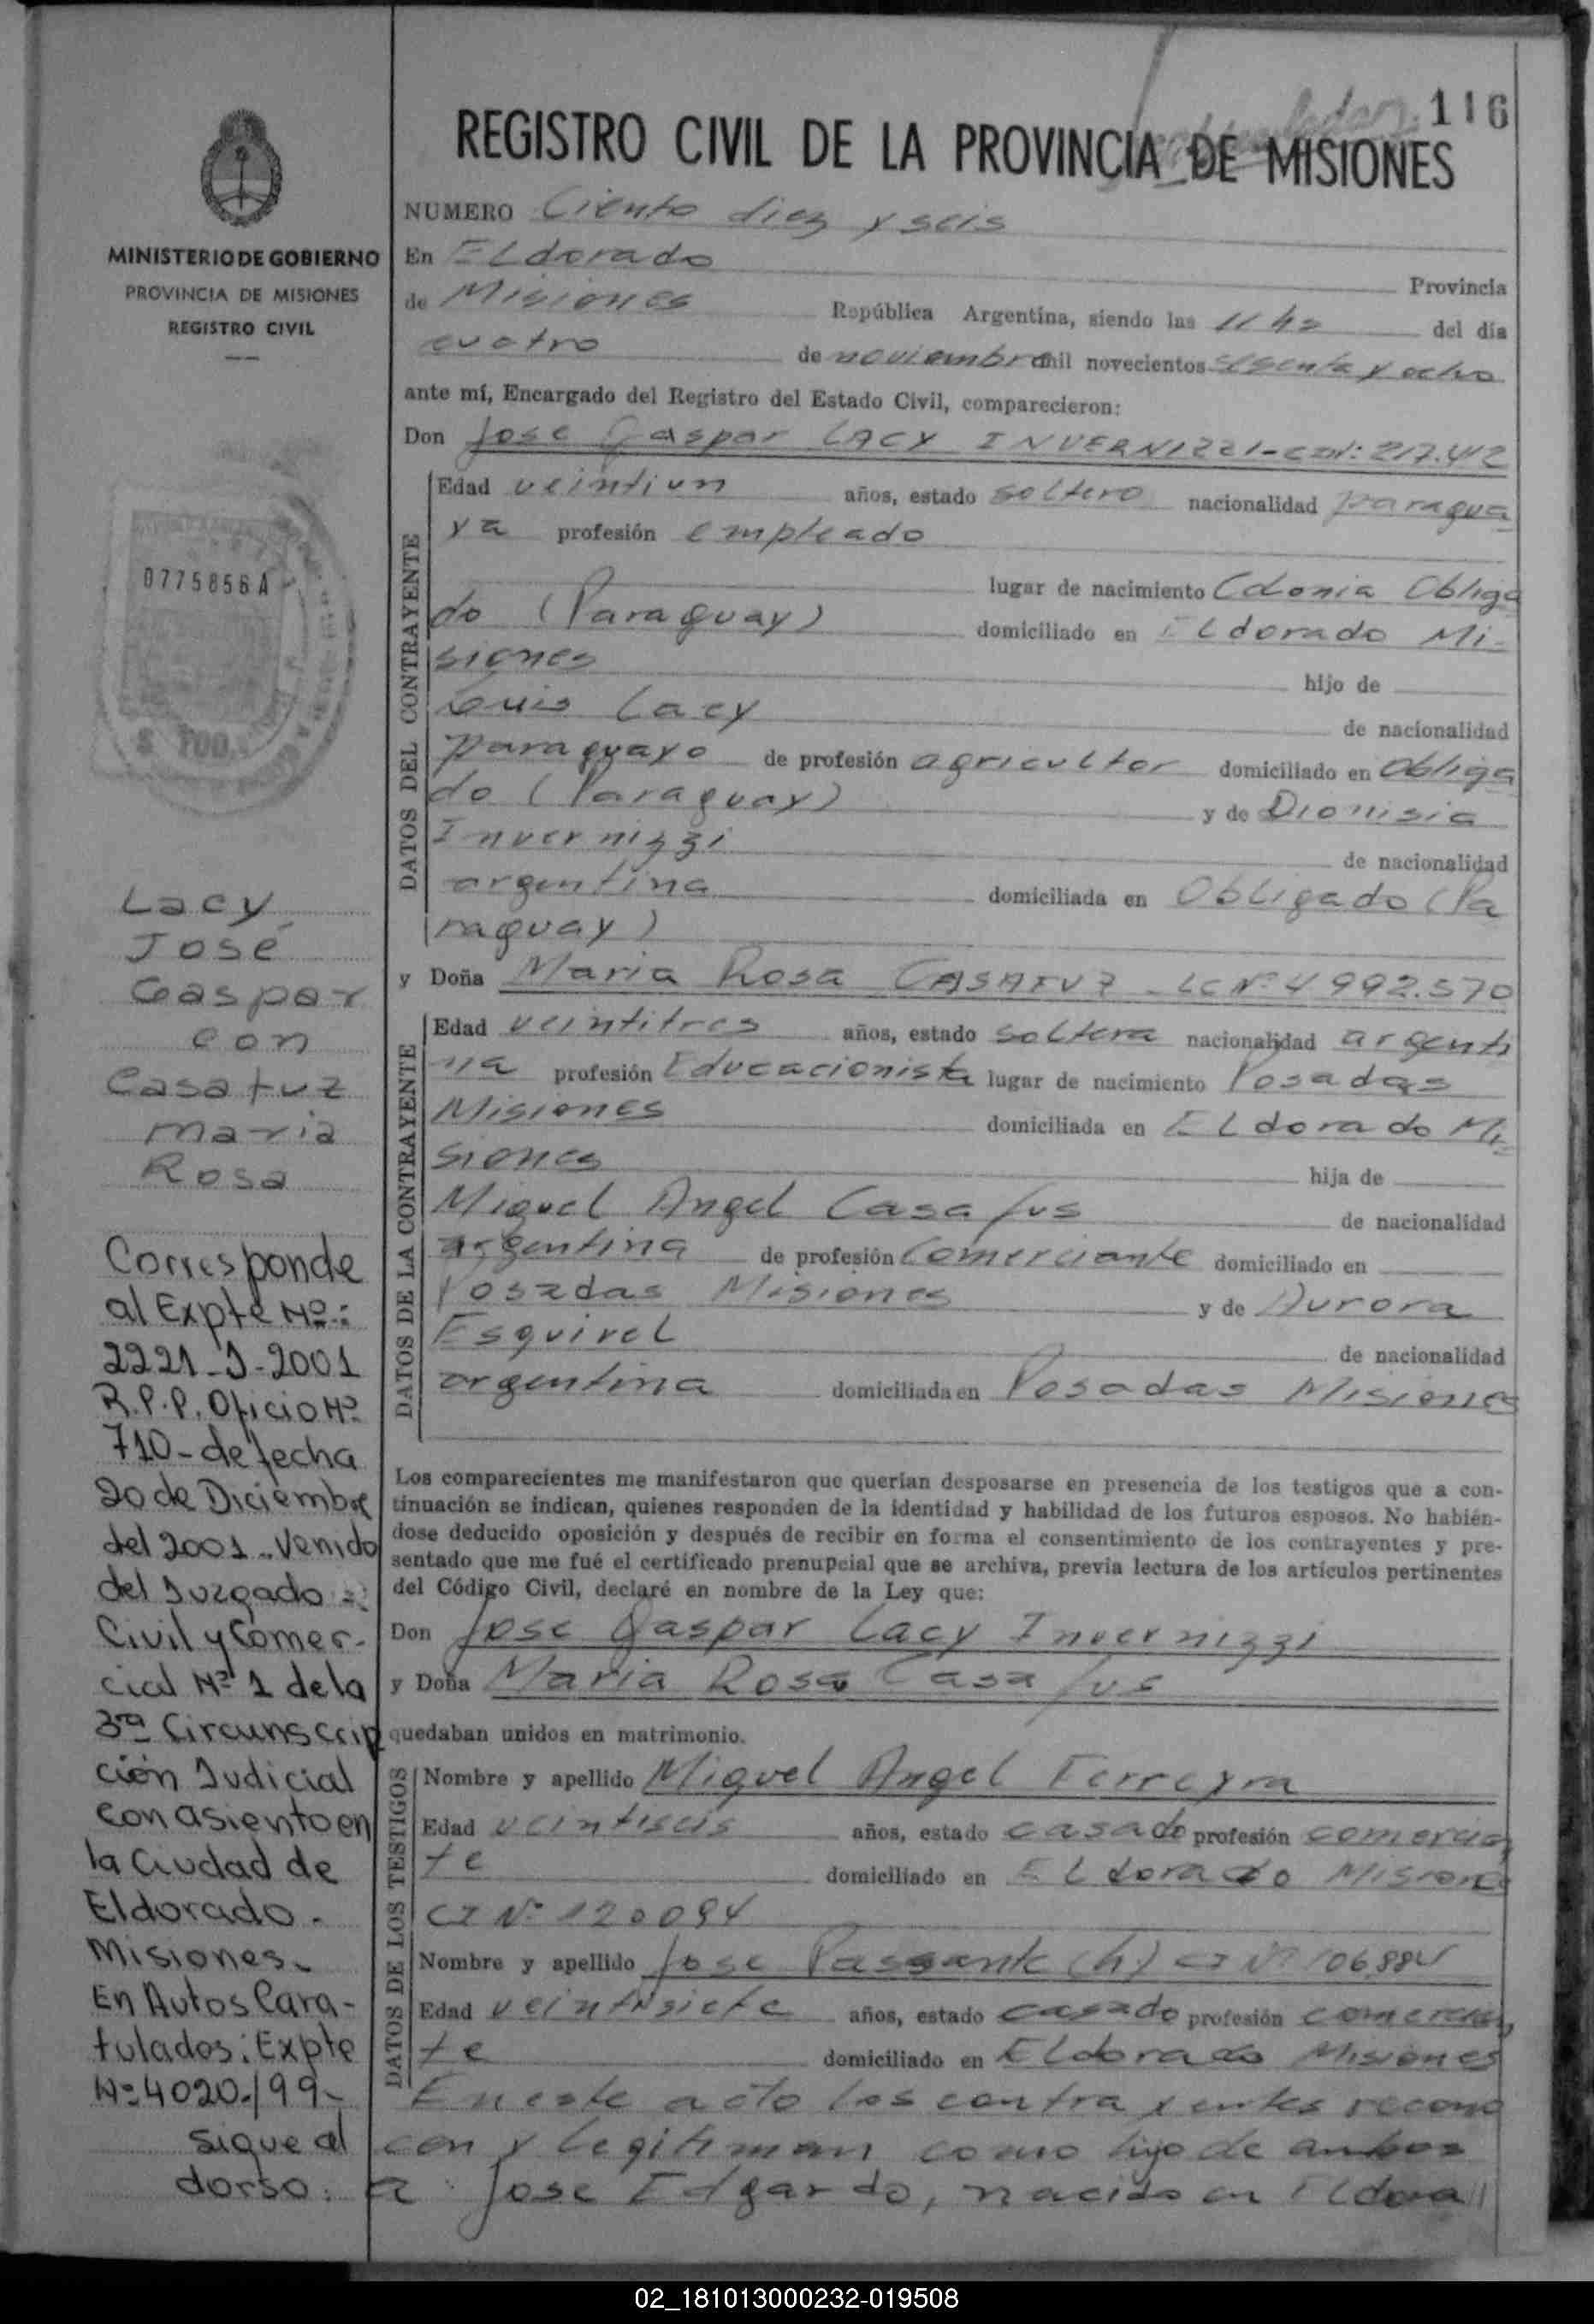 116
REGISTRO CIVIL DE LA PROVINCIA DE MISIONES
MINISTERIO DE GOBIERNO
PROVINCIA DE MISIONES
REGISTRO CIVIL
0775856 A
Lacy
José
Gaspar
con
Casafuz
Maria
Rosa
Corresponde
al Expte Nº:
2221-J-2001
R.P.P. Oficio Nº
710-de fecha
20 de Diciembre
del 2001.-Venido
del Juzgado =
Civil y Comer-
cial Nº 1 de la
3ra Circunscrip
ción Judicial
con asiento en
la Ciudad de
Eldorado.
Misiones.
En Autos Cara-
tulados: Expte
Nº 4020/99-
sigue al
dorso.
NUMERO Ciento diez y seis
En ELdorado Provincia
de Misiones República Argentina, siendo las 11 hs del día
cuatro de noviembre mil novecientos sesenta y ocho
ante mí, Encargado del Registro del Estado Civil, comparecieron:
Don Jose Gaspar LACY INVERNIZZI- 217.412
DATOS DEL CONTRAYENTE
Edad veintiun años, estado soltero nacionalidad paragua
ya profesión empleado
lugar de nacimiento Colonia Obliga
do (Paraguay) domiciliado en ELdorado Mi-
siones hijo de
Luis Lacy de nacionalidad
paraguayo de profesión agricultor domiciliado en Obliga
do (Paraguay) y de Dionisia
Invernizzi de nacionalidad
argentina domiciliada en Obligado (Pa
raguay)
y Doña Maria Rosa CASAFUZ - LC Nº 4992.570
DATOS DE LA CONTRAYENTE
Edad veintitres años, estado soltera nacionalidad argenti
na profesión Educacionista lugar de nacimiento Posadas
Misiones domiciliada en ELdorado Mi-
siones hija de
Miguel Angel Casafus de nacionalidad
argentina de profesión Comerciante domiciliado en
Posadas Misiones y de Aurora
Esquivel de nacionalidad
argentina domiciliada en Posadas Misiones
Los comparecientes me manifestaron que querían desposarse en presencia de los testigos que a con-
tinuación se indican, quienes responden de la identidad y habilidad de los futuros esposos. No habién-
dose deducido oposición y después de recibir en forma el consentimiento de los contrayentes y pre-
sentado que me fué el certificado prenupcial que se archiva, previa lectura de los artículos pertinentes
del Código Civil, declaré en nombre de la Ley que:
Don Jose Gaspar Lacy Invernizzi
y Doña Maria Rosa Casafus
quedaban unidos en matrimonio.
DATOS DE LOS TESTIGOS
Nombre y apellido Miguel Angel Ferreyra
Edad veintiseis años, estado casado profesión comercian
te domiciliado en ELdorado Misiones
CI Nº 120094
Nombre y apellido Jose Passante (h) CI Nº 106884
Edad veintisiete años, estado casado profesión comercian
te domiciliado en ELdorado Misiones
En este acto los contrayentes recono
cen y legitiman como hijo de ambos
a Jose Edgardo, nacido en ELdora
02_181013000232-019508